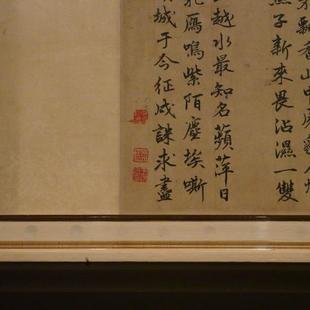 飄香山中
燕子新來畏沾濕一雙
越水最知名蘋萍日
雁鳴紫陌塵埃嘶
城于今征戍誅求盡